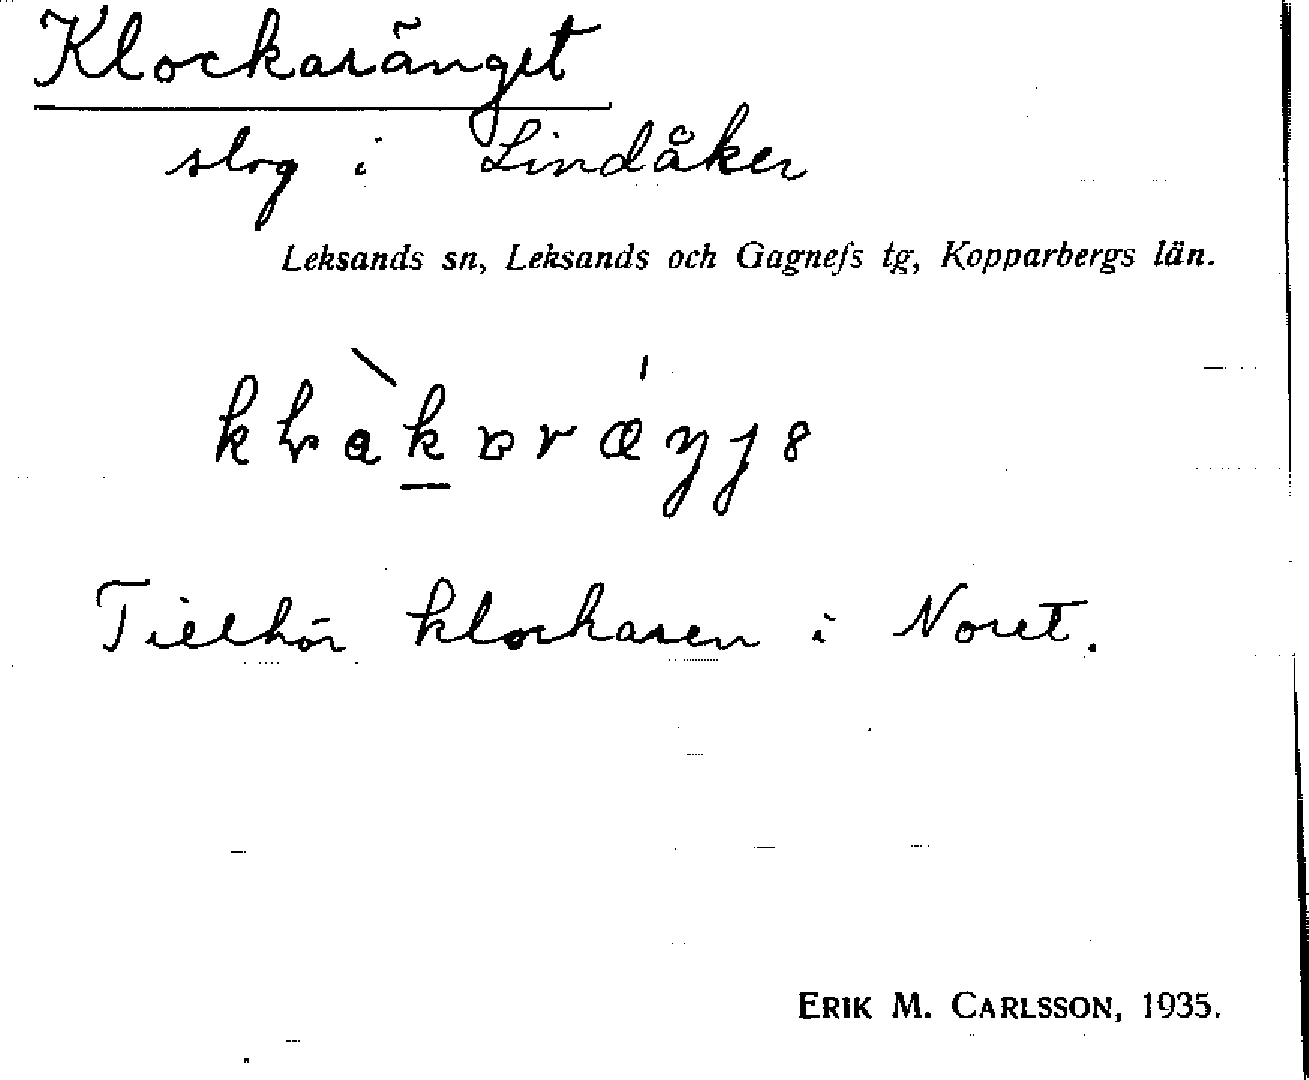 Klockaränget
slog i Lindåker
Leksands sn, Leksands och Gagnefs tg, Kopparbergs län.
Tillhör klockaren i Noret.
ERIK M. CARLSSON, 1935.